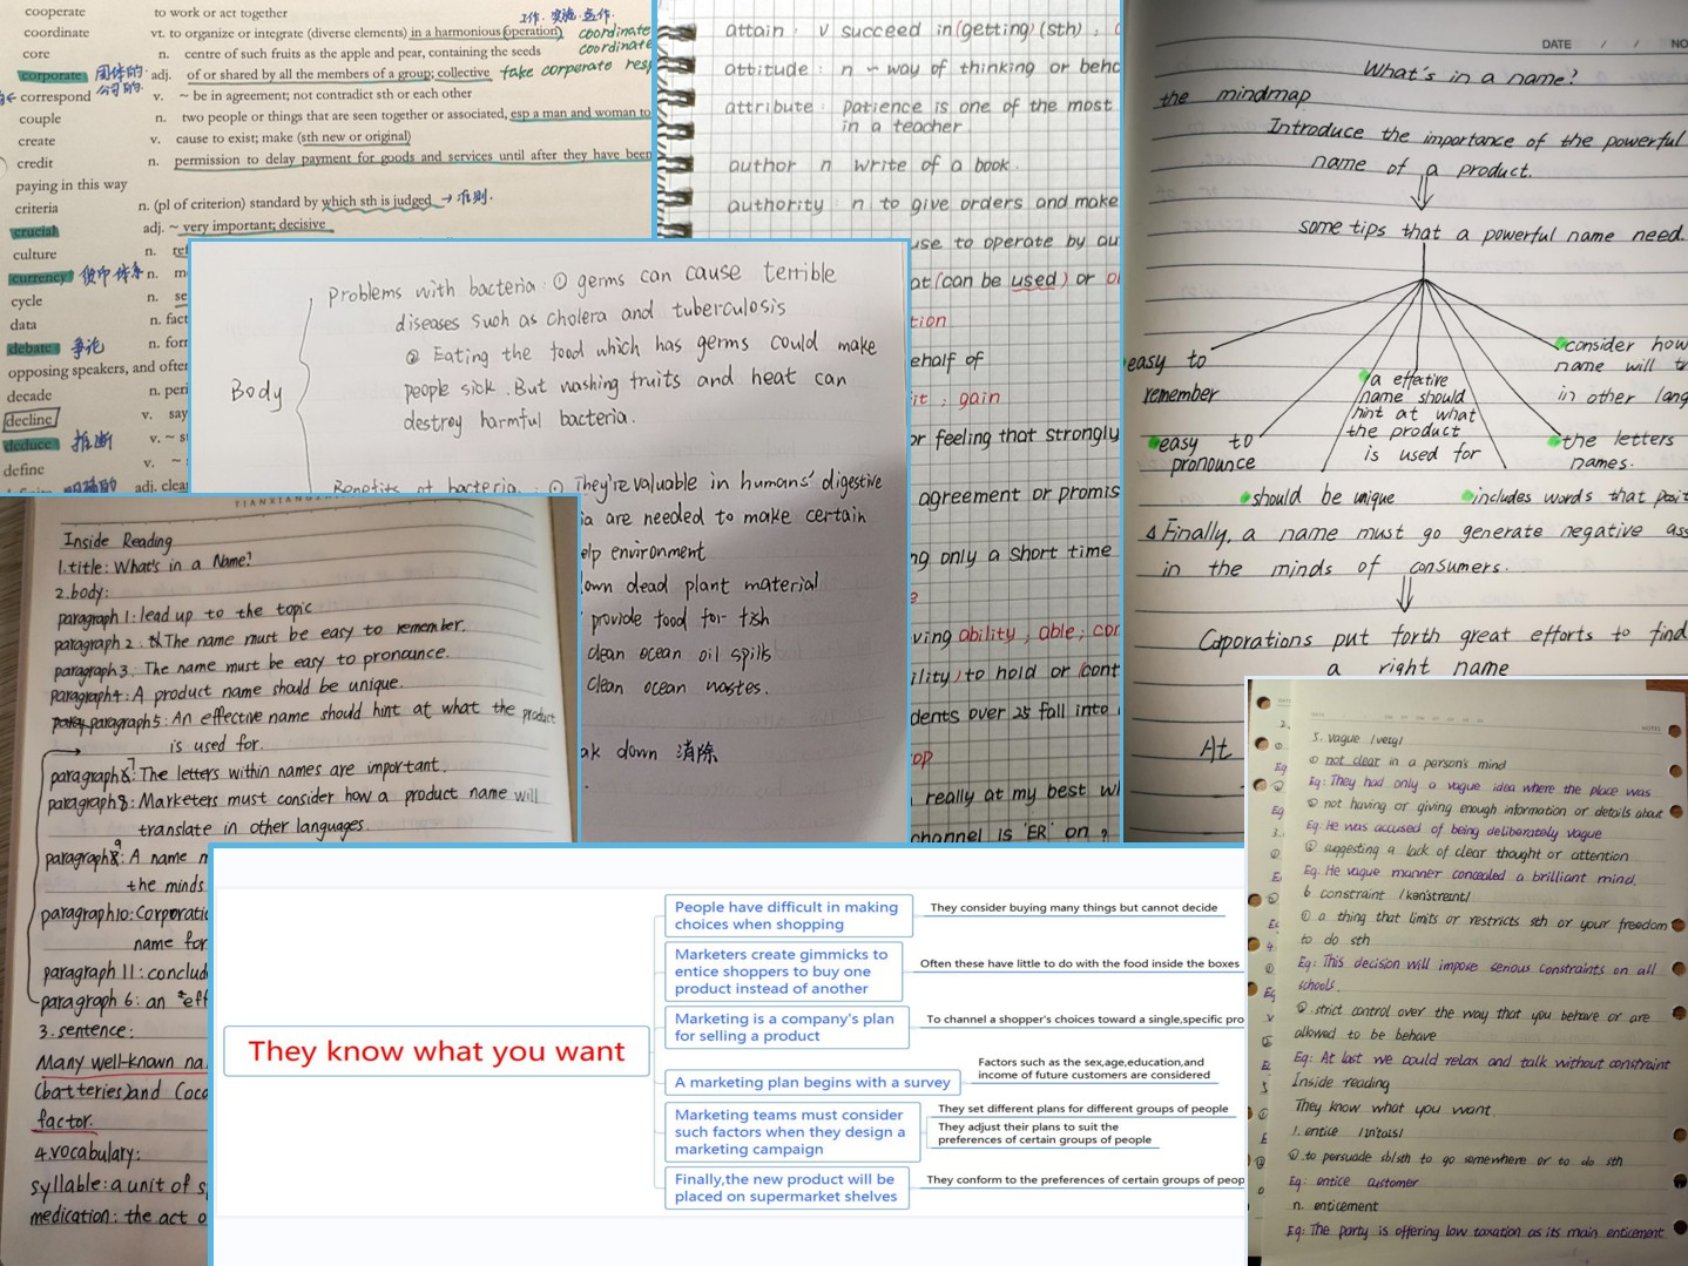 cooperate to work or act together
工作.实施.
coordinate vt. to organize or integrate (diverse elements) in a harmonious operation) coordinate
coordinate
core n. centre of such fruits as the apple and pear, containing the seeds
corporate 团体的. adj. of or shared by all the members of a group; collective take corperate res
公司的.
correspond v. ~ be in agreement; not contradict sth or each other
couple n. two people or things that are seen together or associated, esp a man and woman to
create v. cause to exist; make (sth new or original)
credit n. permission to delay payment for goods and services until after they have been
paying in this way
criteria n. (pl of criterion) standard by which sth is judged → 准则.
crucial adj. ~ very important; decisive
culture n. ref
currency 货币体系 n. m
cycle n. se
data n. fact
debate 争论 n. forr
opposing speakers, and often
decade n. peri
decline v. say
deduce 推断 v. ~ s
define v. ~
明确的 adj. clea
attain : v succeed in (getting) (sth) ,
attitude : n ~ way of thinking or beha
attribute : patience is one of the most
in a teacher
author n write of a book.
authority : n to give orders and make
use to operate by au
at (can be used) or
tion
ehalf of
it ; gain
or feeling that strongly
agreement or promis
ng only a short time
ving ability , able ; cor
ility) to hold or (cont
dents over 25 fall into
op
really at my best wh
channel is 'ER' on
DATE / / NO
What's in a name?
the mindmap
Introduce the importance of the powerful
name of a product.
some tips that a powerful name need.
easy to
remember
easy to
pronounce
should be unique
a effective
name should
hint at what
the product
is used for
includes words that
consider how
name will t
in other lang
the letters
names.
Finally, a name must go generate negative ass
in the minds of consumers.
Coporations put forth great efforts to find
a right name
At
Body
Problems with bacteria: ① germs can cause terrible
diseases such as cholera and tuberculosis
② Eating the food which has germs could make
people sick. But washing fruits and heat can
destroy harmful bacteria.
Benefits of bacteria: ① They're valuable in humans' digestive
ia are needed to make certain
elp environment
down dead plant material
provide food for fish
clean ocean oil spills
clean ocean wastes.
ak down 消除
TIANXIANG
Inside Reading
1.title: What's in a Name?
2.body:
paragraph 1: lead up to the topic
paragraph 2: The name must be easy to remember.
paragraph 3: The name must be easy to pronounce.
paragraph 4: A product name should be unique.
paragraph 5: An effective name should hint at what the product
is used for.
paragraph 7: The letters within names are important.
paragraph 8: Marketers must consider how a product name will
translate in other languages.
paragraph 9: A name m
the minds
paragraph 10: Corporatio
name for
paragraph 11: conclud
paragraph 6: an "eff
3.sentence:
Many well-known na
(batteries) and Coca
factor.
4.vocabulary:
syllable: a unit of s
medication: the act o
They know what you want
People have difficult in making
choices when shopping
They consider buying many things but cannot decide
Marketers create gimmicks to
entice shoppers to buy one
product instead of another
Often these have little to do with the food inside the boxes
Marketing is a company's plan
for selling a product
To channel a shopper's choices toward a single,specific pro
A marketing plan begins with a survey
Factors such as the sex,age,education,and
income of future customers are considered
Marketing teams must consider
such factors when they design a
marketing campaign
They set different plans for different groups of people
They adjust their plans to suit the
preferences of certain groups of people
Finally,the new product will be
placed on supermarket shelves
They conform to the preferences of certain groups of peop
NOTES
5. vague /veɪg/
① not clear in a person's mind
Eg: They had only a vague idea where the place was
② not having or giving enough information or details about
Eg: He was accused of being deliberately vague
③ suggesting a lack of clear thought or attention
Eg. He vague manner concealed a brilliant mind.
6 constraint /kənˈstreɪnt/
① a thing that limits or restricts sth or your freedom
to do sth
Eg: This decision will impose serious constraints on all
schools.
② strict control over the way that you behave or are
allowed to be behave
Eg: At last we could relax and talk without constraint
Inside reading
They know what you want.
1. entice /ɪnˈtaɪs/
① to persuade sb/sth to go somewhere or to do sth
Eg: entice customer
n. enticement
Eg: The party is offering low taxation as its main enticement